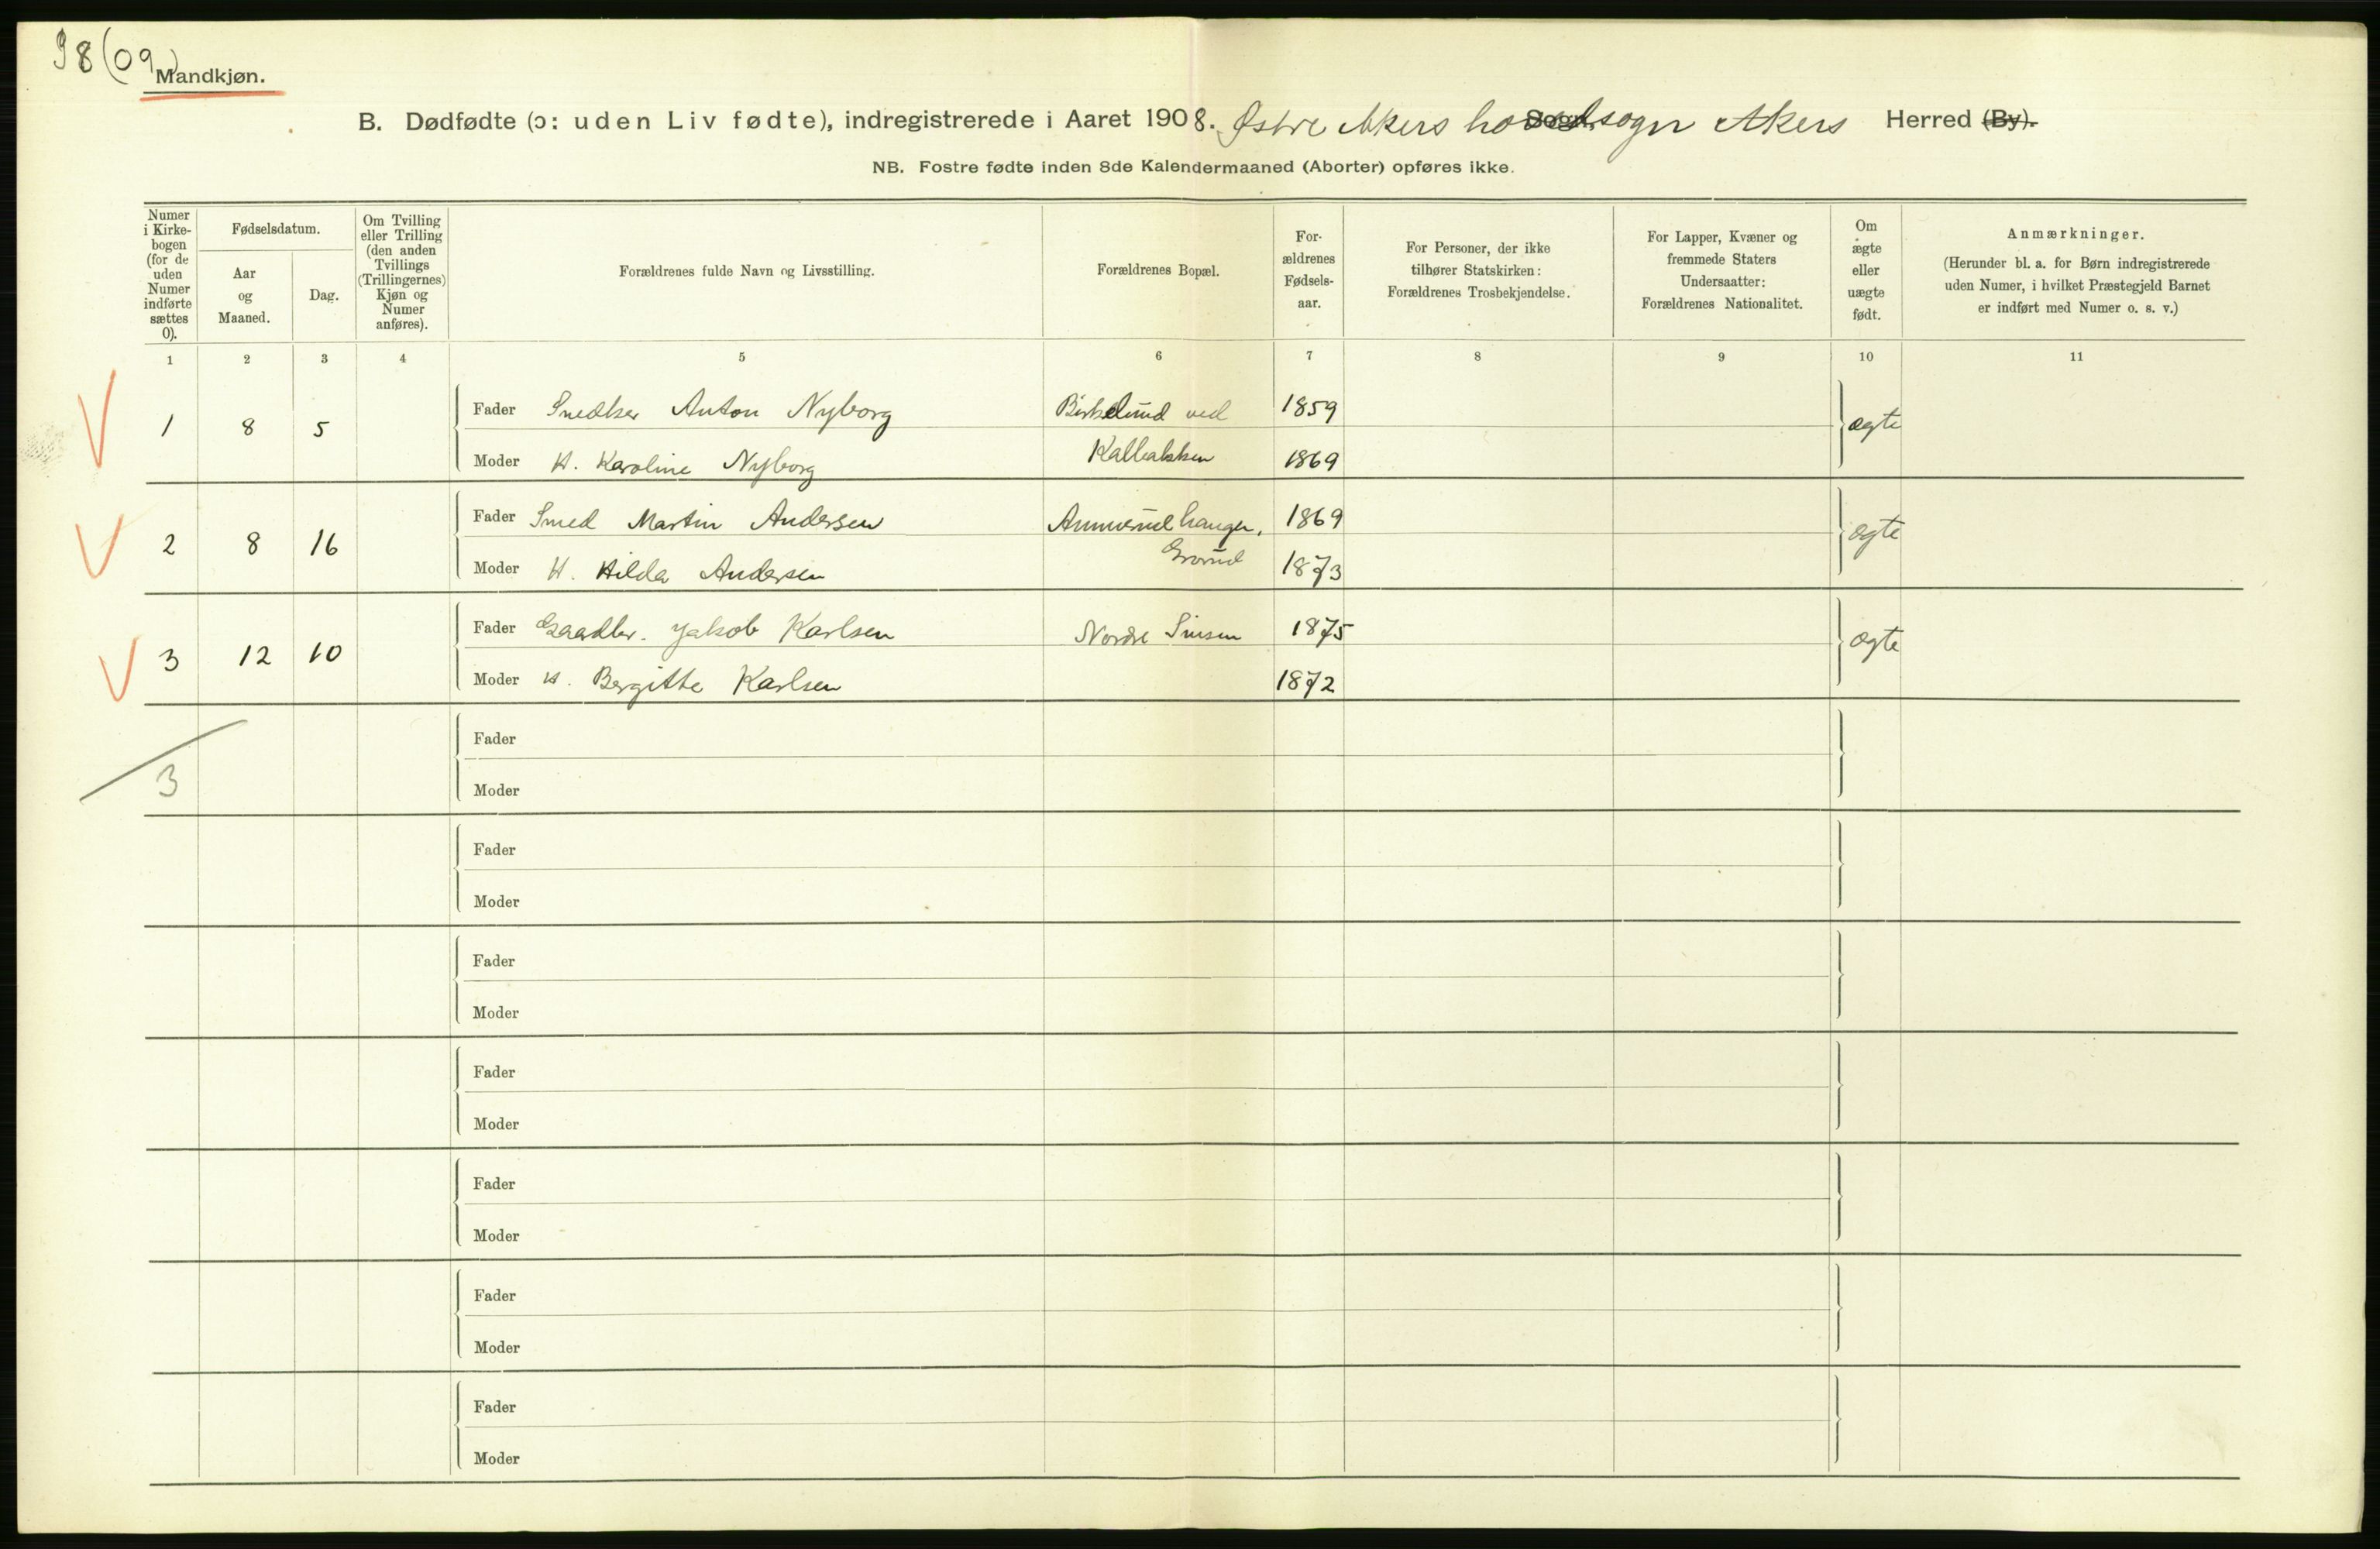 98(09)
Mandkjøn.
B. Dødfødte (ɔ: uden Liv fødte), indregistrerede i Aaret 1908. Østre Akers hovedsogn Akers Herred (By).
NB. Fostre fødte inden 8de Kalendermaaned (Aborter) opføres ikke.
Numer
i Kirke-
bogen
(for de
uden
Numer
indførte
sættes
0).
Fødselsdatum.
Aar
og
Maaned.
Dag.
Om Tvilling
eller Trilling
(den anden
Tvillings
(Trillingernes)
Kjøn og
Numer
anføres).
Forældrenes fulde Navn og Livsstilling.
Forældrenes Bopæl.
For-
ældrenes
Fødsels-
aar.
For Personer, der ikke
tilhører Statskirken:
Forældrenes Trosbekjendelse.
For Lapper, Kvæner og
fremmede Staters
Undersaatter:
Forældrenes Nationalitet.
Om
ægte
eller
uægte
født.
Anmærkninger.
(Herunder bl. a. for Børn indregistrerede
uden Numer, i hvilket Præstegjeld Barnet
er indført med Numer o. s. v.)
1 2 3 4 5 6 7 8 9 10 11
1 8 5 Fader Snedker Anton Nyborg Birkelund ved 1859 ægte
Moder H. Karoline Nyborg Kalbakken 1869
2 8 16 Fader Smed Martin Andersen Ammerudhaugen, 1869 ægte
Moder H. Hilda Andersen Grorud 1873
3 12 10 Fader Gaardbr. Jakob Karlsen Nordre Sinsen 1875 ægte
Moder H. Bergitte Karlsen 1872
Fader
3
Moder
Fader
Moder
Fader
Moder
Fader
Moder
Fader
Moder
Fader
Moder
Fader
Moder